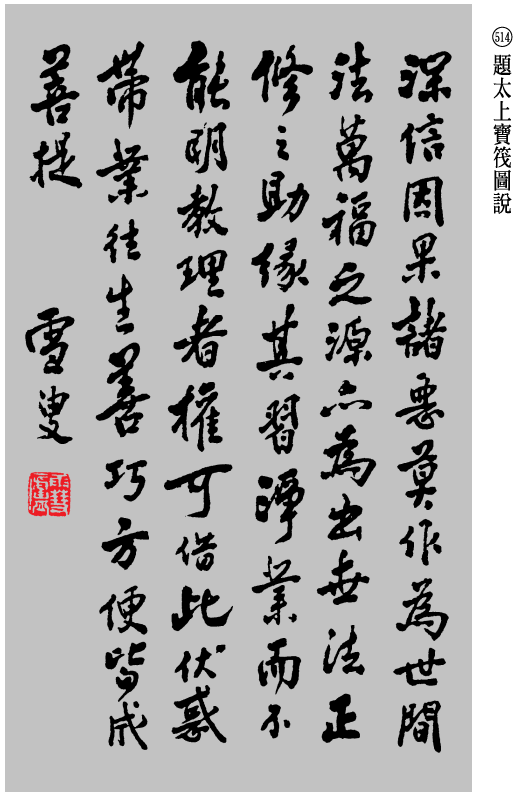 514 題太上寶筏圖說
深信因果諸惡莫作為世間
法萬福之源亦為出世法正
修之助緣其習淨業而不
能明教理者權可借此伏惑
帶業往生善巧方便皆成
菩提
雪叟